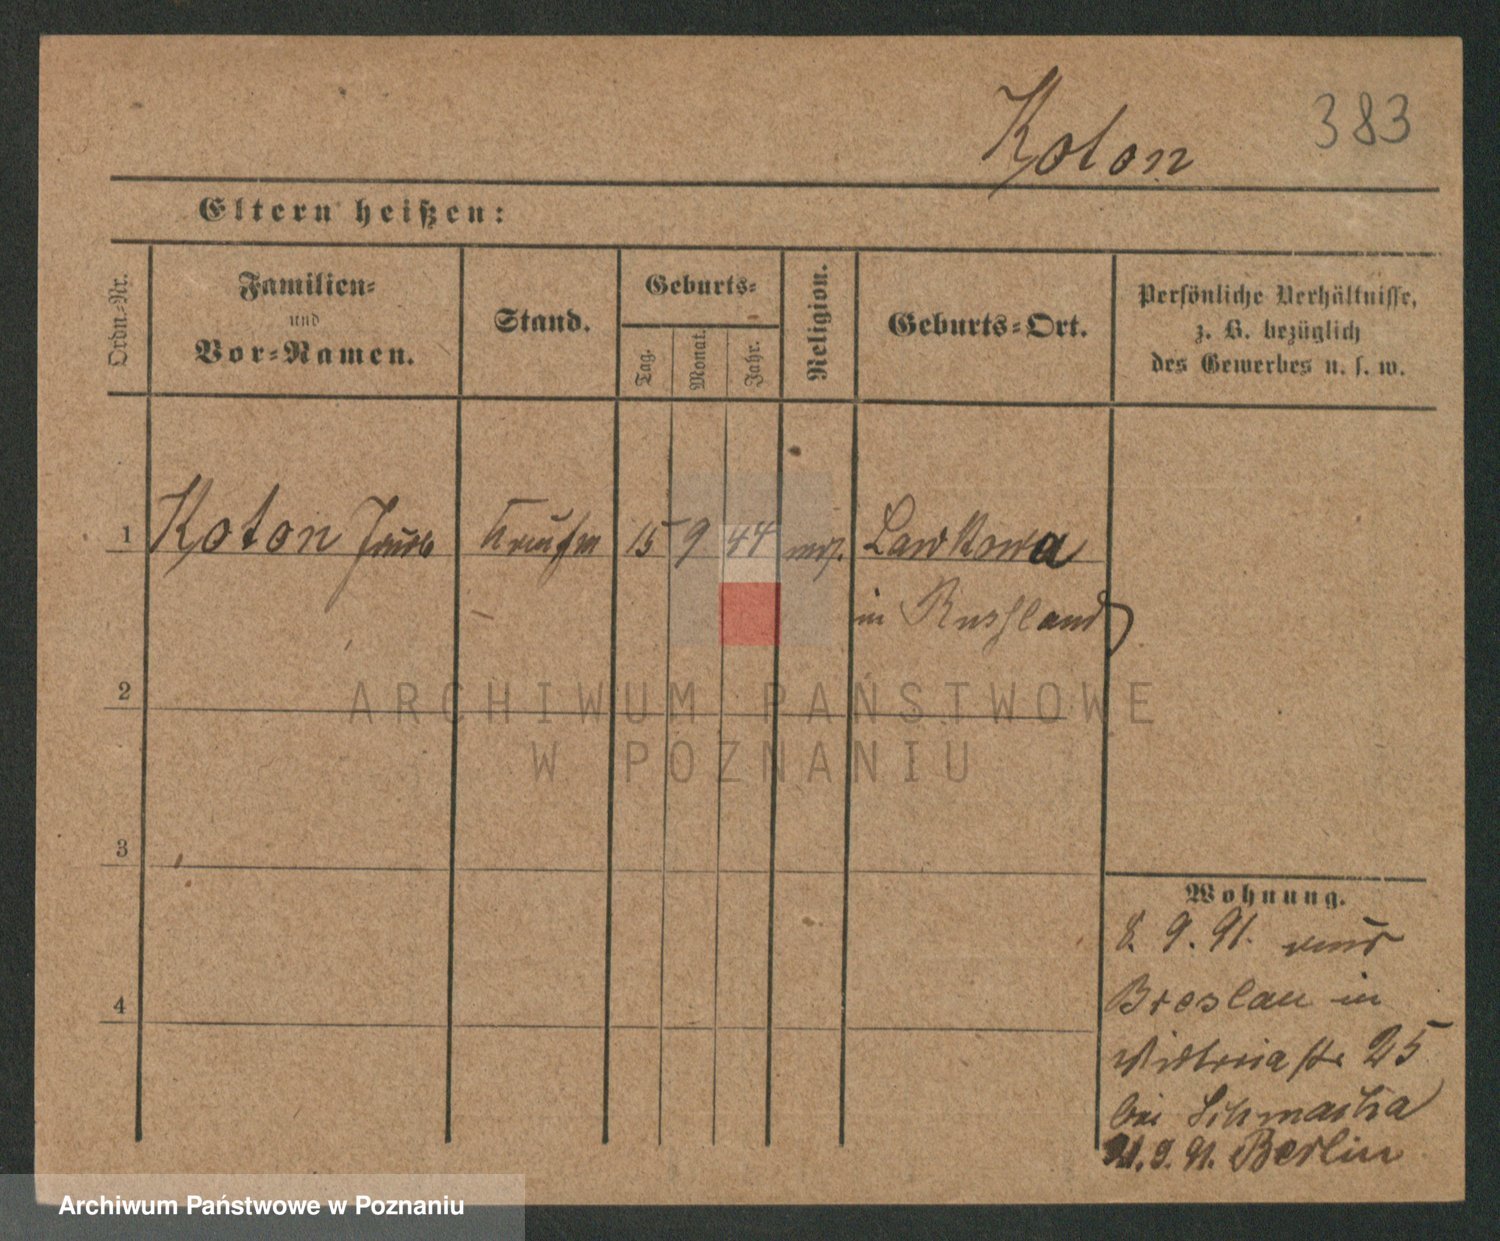 Koton 383
Eltern heißen:
Ordn.-Nr.
Familien-
und
Vor-Namen.
Stand.
Geburts-
Tag.
Monat.
Jahr.
Religion.
Geburts-Ort.
Persönliche Verhältnisse,
z. B. bezüglich
des Gewerbes u. s. w.
1 Koton Kaufm 15 9 44 mos.
in Russland
2
3
4
Wohnung.
8. 9. 91.
Breslau in
25
bei
9. 91. Berlin
ARCHIWUM PAŃSTWOWE
W POZNANIU
Archiwum Państwowe w Poznaniu